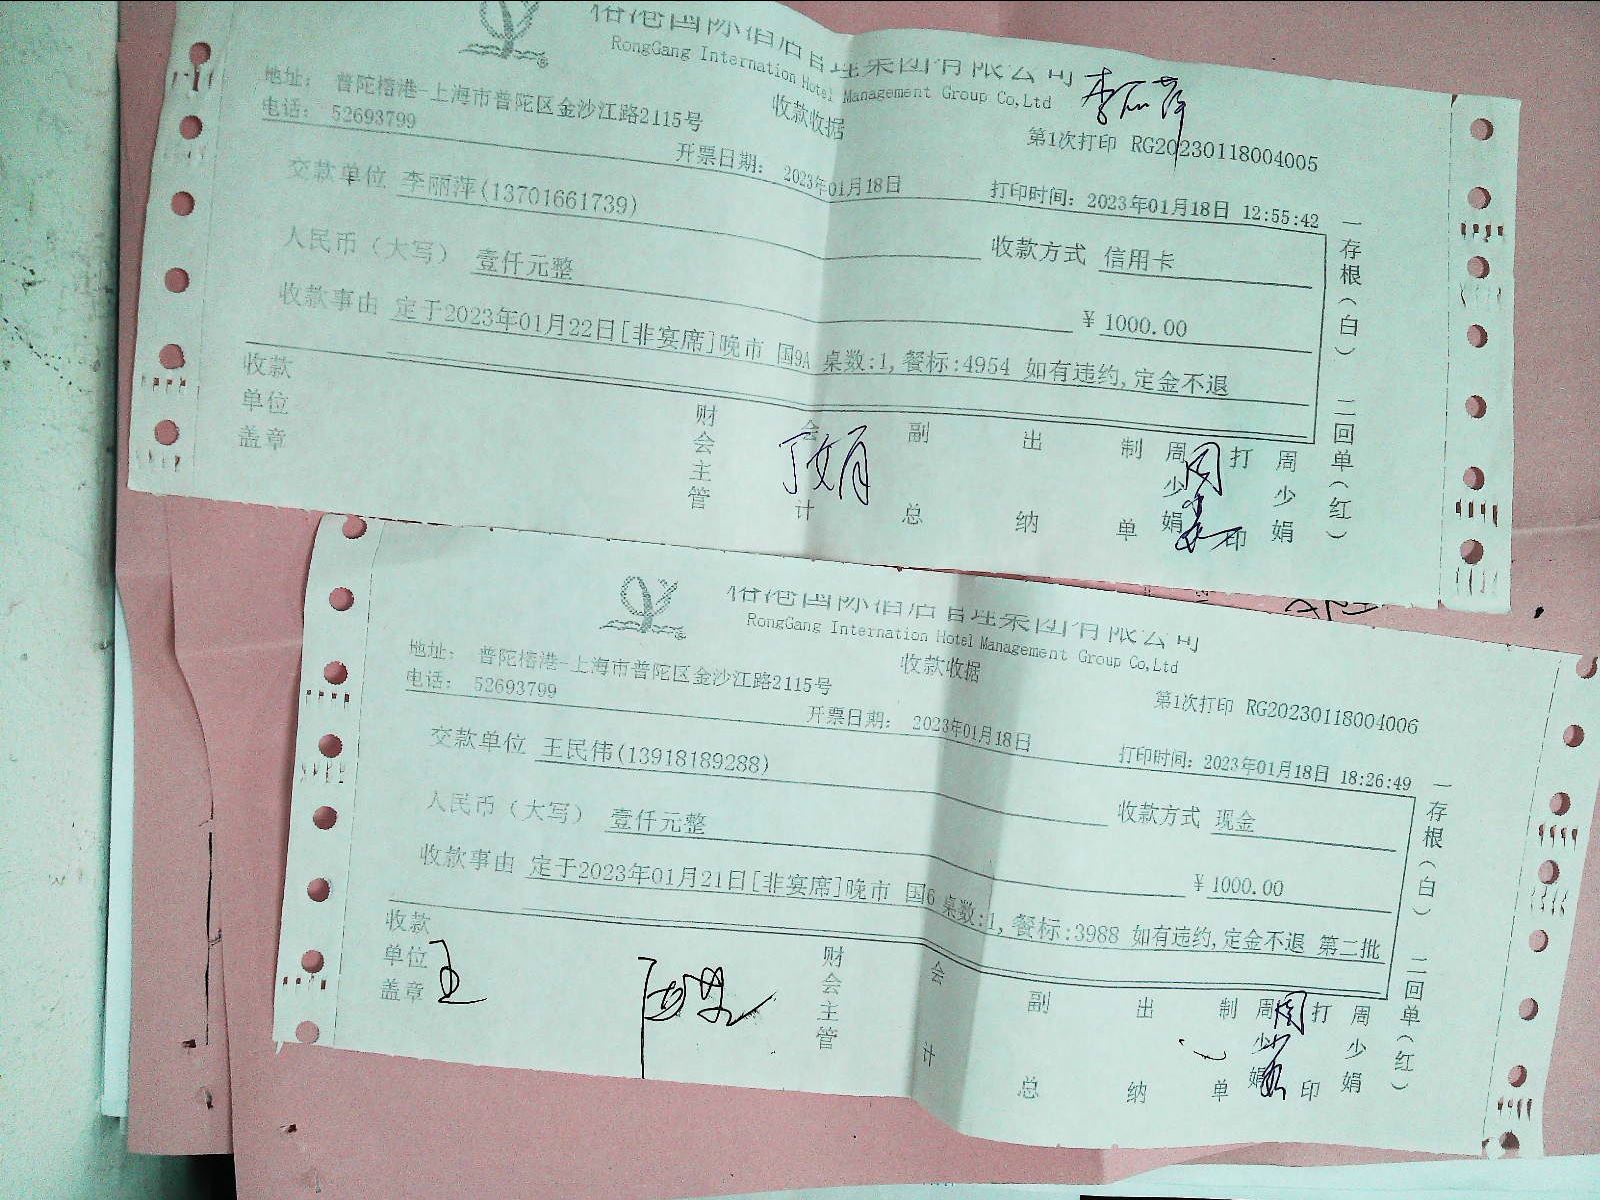 榕港国际酒店管理集团有限公司
RongGang Internation Hotel Management Group Co,Ltd
李丽萍
地址： 普陀榕港-上海市普陀区金沙江路2115号
收款收据
第1次打印 RG20230118004005
电话： 52693799
开票日期： 2023年01月18日
打印时间：2023年01月18日 12:55:42
交款单位 李丽萍(13701661739)
收款方式 信用卡
人民币（大写） 壹仟元整
¥ 1000.00
收款事由 定于2023年01月22日[非宴席]晚市 国9A 桌数:1,餐标:4954 如有违约,定金不退
收款单位盖章
财会主管
会计
副总
出纳
制单
周少娟
打印
周少娟
一存根（白） 二回单（红）
榕港国际酒店管理集团有限公司
RongGang Internation Hotel Management Group Co,Ltd
地址： 普陀榕港-上海市普陀区金沙江路2115号
收款收据
第1次打印 RG20230118004006
电话： 52693799
开票日期： 2023年01月18日
打印时间：2023年01月18日 18:26:49
交款单位 王民伟(13918189288)
收款方式 现金
人民币（大写） 壹仟元整
¥ 1000.00
收款事由 定于2023年01月21日[非宴席]晚市 国6 桌数:1,餐标:3988 如有违约,定金不退 第二批
收款单位盖章
王
财会主管
会计
副总
出纳
制单
周少娟
打印
周少娟
一存根（白） 二回单（红）